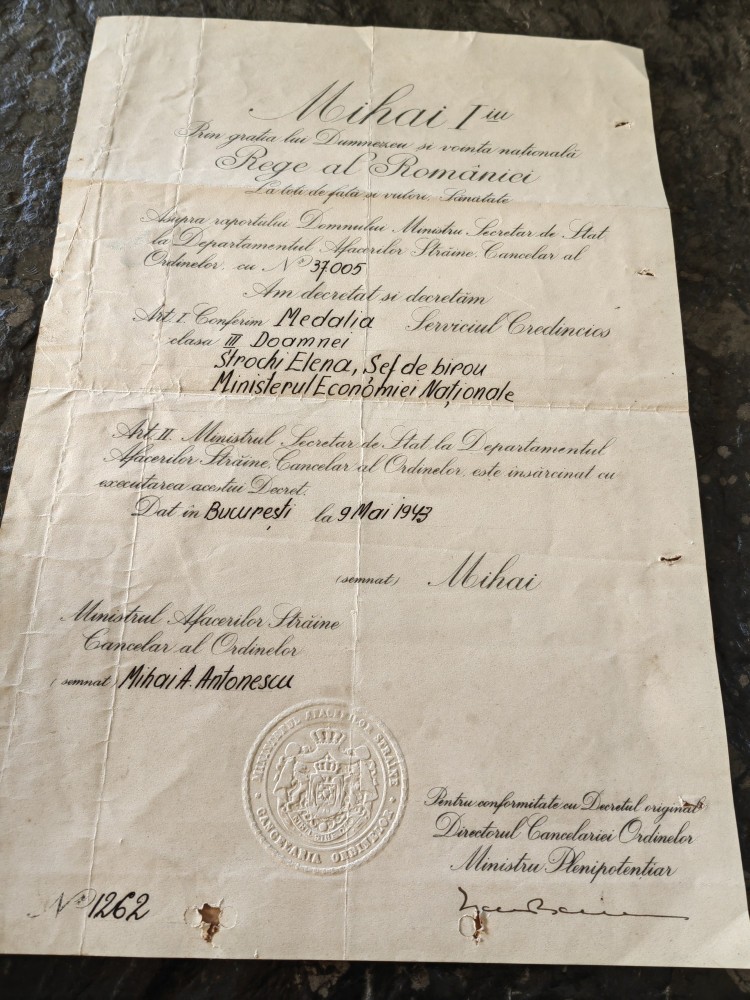 Mihai I iu
Prin gratia lui Dumnezeu si vointa natională
Rege al României
La toti de fată si viitori, Sănătate
Asupra raportului Domnului Ministru Secretar de Stat
la Departamentul Afacerilor Străine, Cancelar al
Ordinelor, cu No 37005
Am decretat si decretăm
Art. I. Conferim Medalia Serviciul Credincios
clasa III Doamnei
Strochi Elena, Șef de birou
Ministerul Economiei Naționale
Art. II. Ministrul Secretar de Stat la Departamentul
Afacerilor Străine, Cancelar al Ordinelor, este însărcinat cu
executarea acestui Decret.
Dat în București la 9 Mai 1943
(semnat) Mihai
Ministrul Afacerilor Străine
Cancelar al Ordinelor
(semnat) Mihai A. Antonescu
MINISTERUL AFACERILOR STRAINE
CANCELARIA ORDINELOR
Pentru conformitate cu Decretul original
Directorul Cancelariei Ordinelor
Ministru Plenipotențiar
No 1262